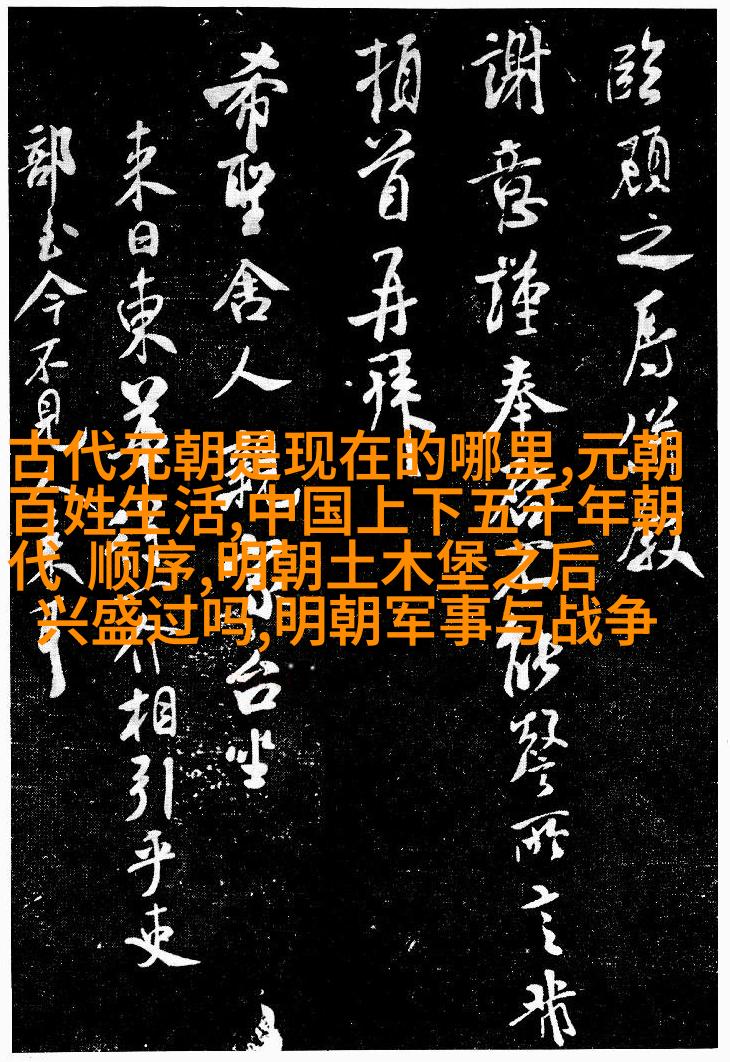 臨顧之
謝意謹奉啓不能所言
頓首再拜
希聖舍人親家台坐
来日東相引乎吏
部至今不見人来
古代元朝是现在的哪里,元朝
百姓生活,中国上下五千年朝
代 顺序,明朝土木堡之后
兴盛过吗,明朝军事与战争